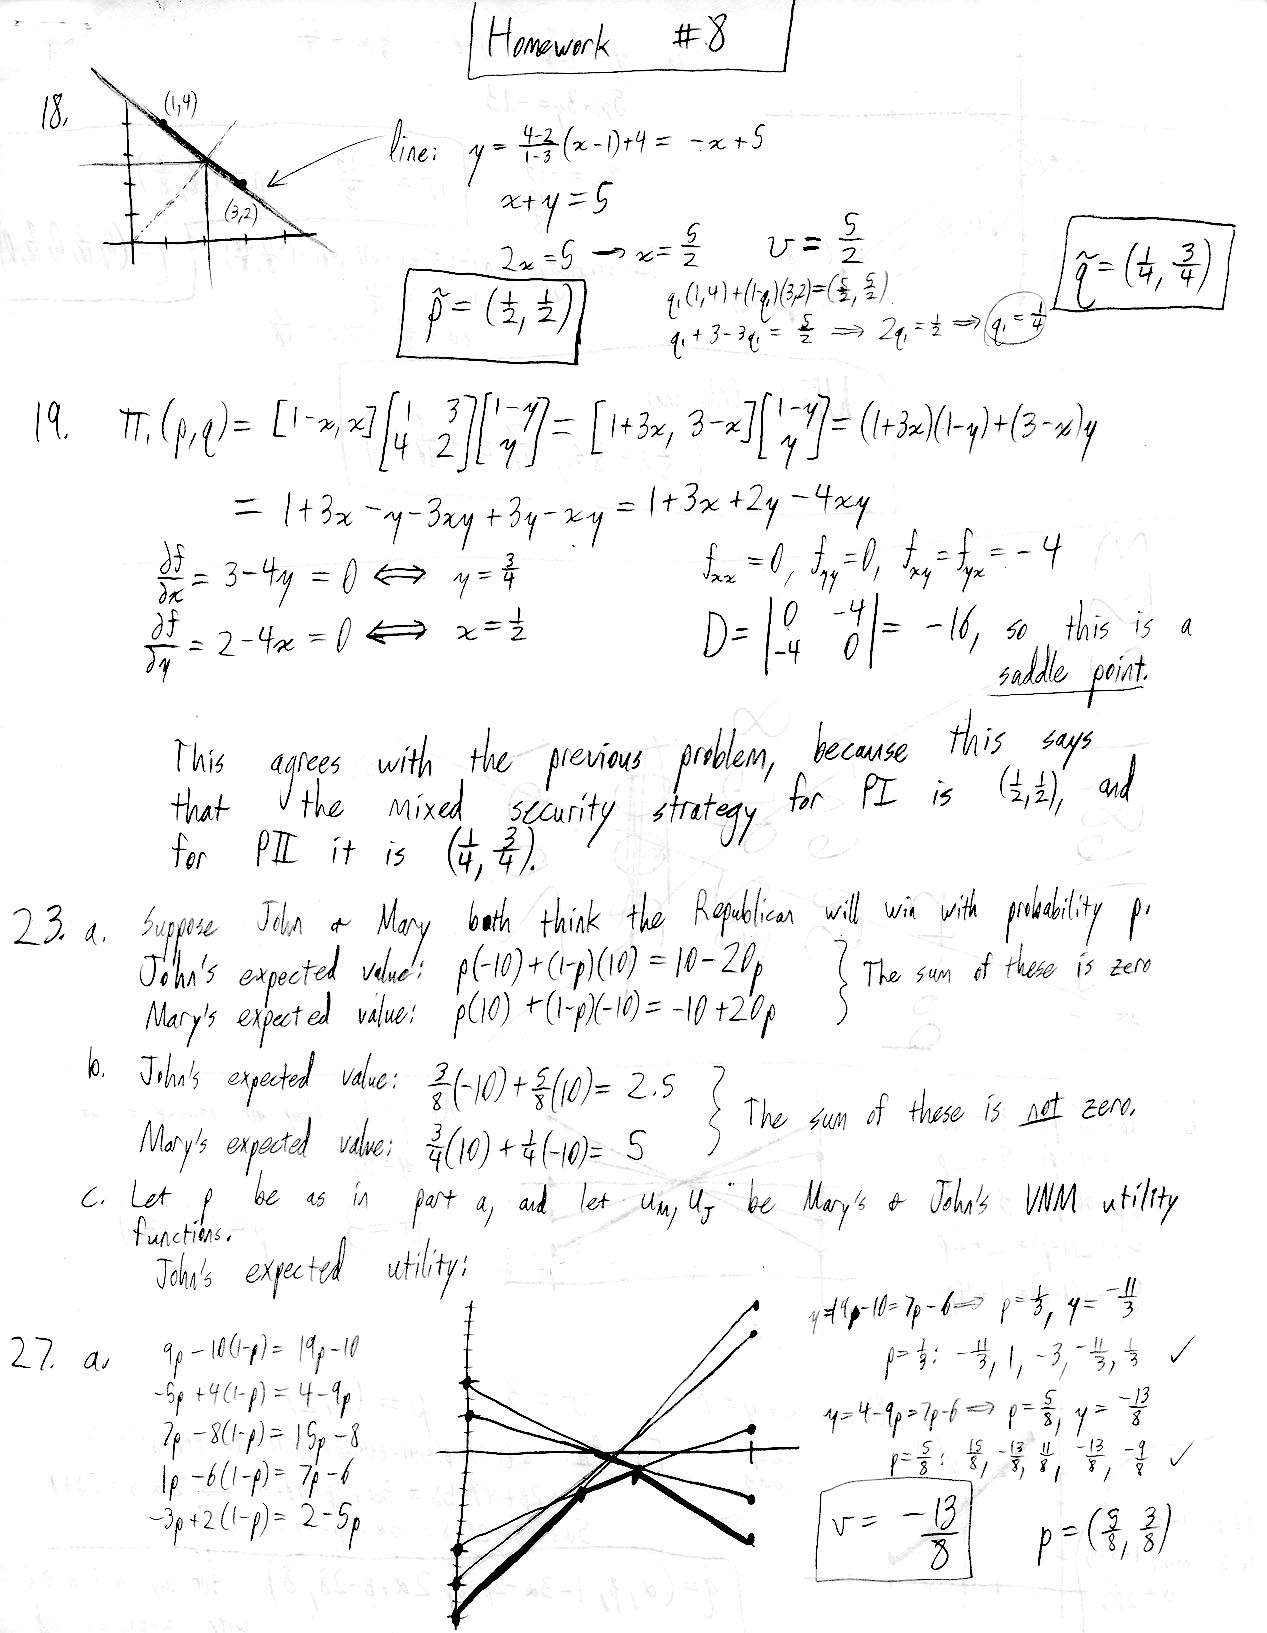 Homework #8
18.
(1,4)
(3,2)
line: y = \frac{4-2}{1-3}(x-1)+4 = -x+5
x+y=5
2x=5 → x=\frac{5}{2} v=\frac{5}{2}
p̃=(\frac{1}{2}, \frac{1}{2})
q₁(1,4)+(1-q₁)(3,2)=(\frac{5}{2}, \frac{5}{2})
q₁+3-3q₁=\frac{5}{2} ⟹ 2q₁=\frac{1}{2} ⟹ q₁=\frac{1}{4}
q̃=(\frac{1}{4}, \frac{3}{4})
19. π₁(p,q)= [1-x, x][1 3; 4 2][1-y; y] = [1+3x, 3-x][1-y; y] = (1+3x)(1-y)+(3-x)y
= 1+3x-y-3xy+3y-xy = 1+3x+2y-4xy
\frac{∂f}{∂x} = 3-4y = 0 ⟺ y=\frac{3}{4}
\frac{∂f}{∂y} = 2-4x = 0 ⟺ x=\frac{1}{2}
f_{xx}=0, f_{yy}=0, f_{xy}=f_{yx}=-4
D=|0 -4; -4 0|= -16, so this is a
saddle point.
This agrees with the previous problem, because this says
that the mixed security strategy for PI is (\frac{1}{2}, \frac{1}{2}), and
for PII it is (\frac{1}{4}, \frac{3}{4}).
23. a. Suppose John & Mary both think the Republican will win with probability p.
John's expected value: p(-10)+(1-p)(10) = 10-20p
Mary's expected value: p(10)+(1-p)(-10) = -10+20p
} The sum of these is zero
b. John's expected value: \frac{3}{8}(-10)+\frac{5}{8}(10) = 2.5
Mary's expected value: \frac{3}{4}(10)+\frac{1}{4}(-10) = 5
} The sum of these is not zero.
c. Let p be as in part a, and let u_M, u_J be Mary's & John's VNM utility
functions.
John's expected utility:
27. a. 9p-10(1-p) = 19p-10
-5p+4(1-p) = 4-9p
7p-8(1-p) = 15p-8
1p-6(1-p) = 7p-6
-3p+2(1-p) = 2-5p
y=19p-10=7p-6 ⟹ p=\frac{1}{3}, y=\frac{-11}{3}
p=\frac{1}{3}: -\frac{11}{3}, 1, -3, -\frac{11}{3}, \frac{1}{3} ✓
y=4-9p=7p-6 ⟹ p=\frac{5}{8}, y=\frac{-13}{8}
p=\frac{5}{8}: \frac{15}{8}, -\frac{13}{8}, \frac{11}{8}, -\frac{13}{8}, -\frac{9}{8} ✓
v = \frac{-13}{8}
p=(\frac{5}{8}, \frac{3}{8})